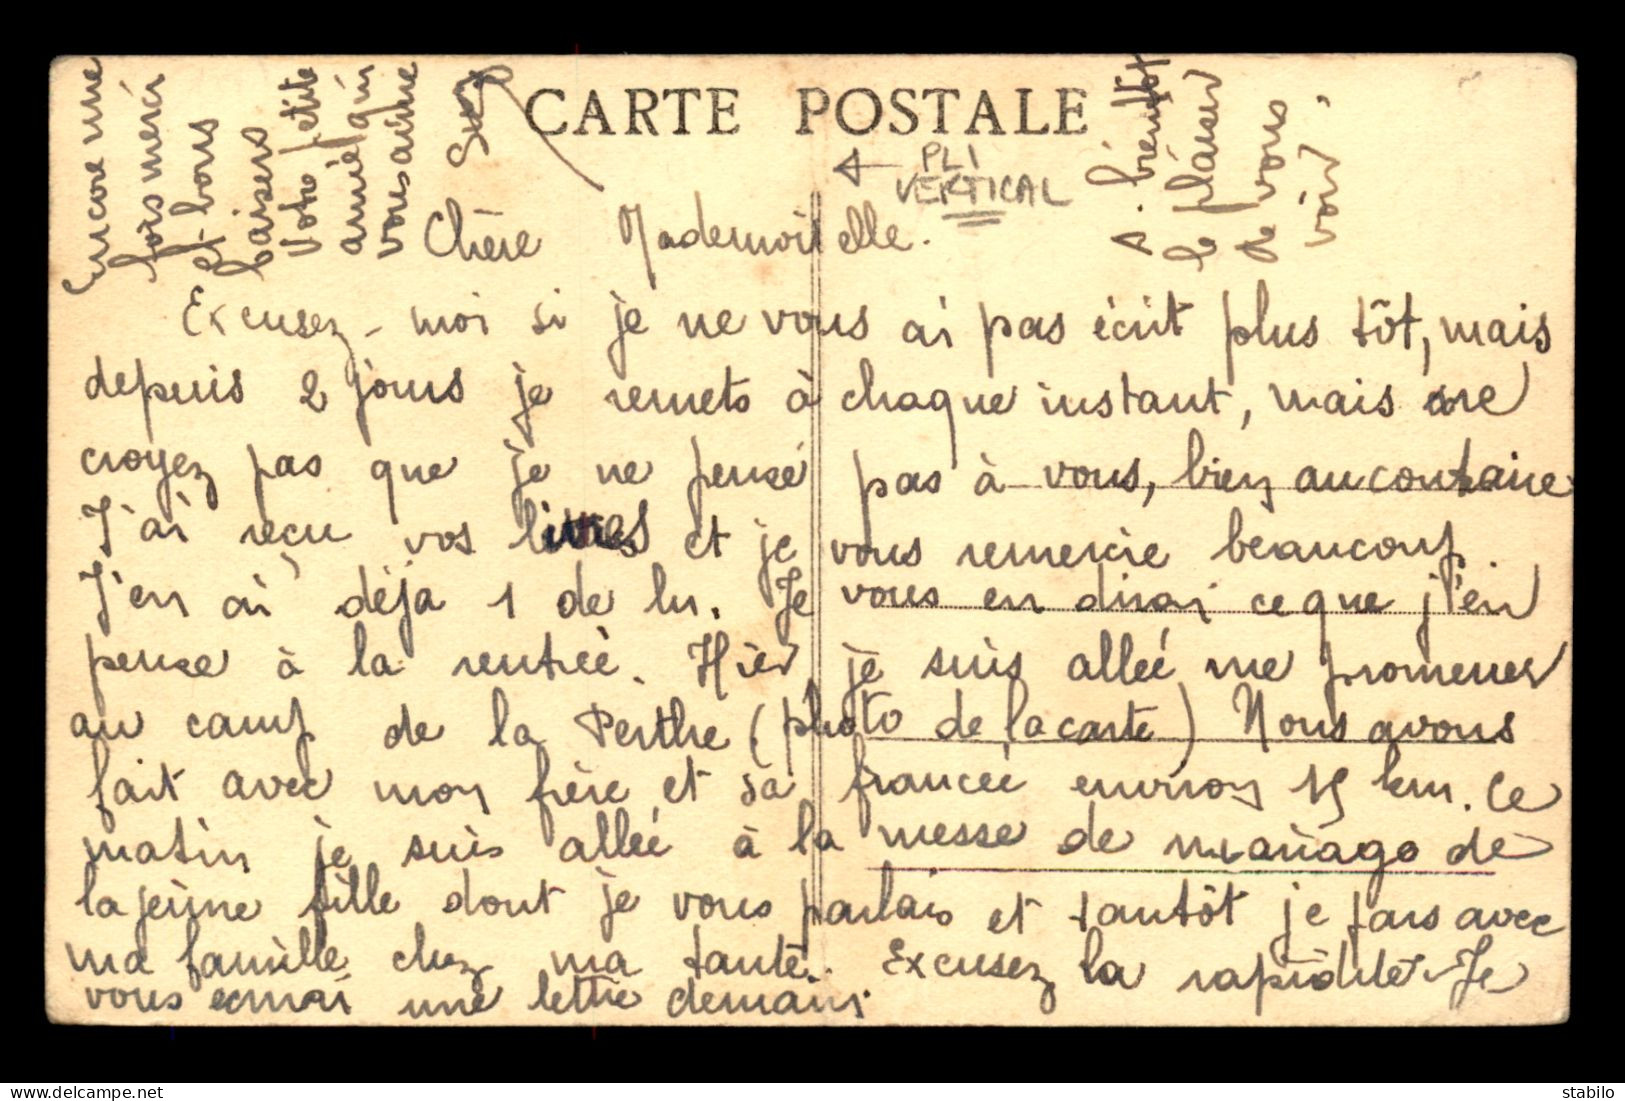 CARTE POSTALE
PLI
VERTICAL
Chère Mademoiselle.
Excusez-moi si je ne vous ai pas écrit plus tôt, mais
depuis 2 jours je remets à chaque instant, mais ne
croyez pas que je ne pense pas à vous, bien au contraire
J'ai reçu vos livres et je vous remercie beaucoup
J'en ai déjà 1 de lu. Je vous en dirai ce que j'en
pense à la rentrée. Hier, je suis allée me promener
au camp de la Perthe (photo de la carte) Nous avons
fait avec mon frère et sa fiancée environ 15 km. Ce
matin je suis allée à la messe de mariage de
la jeune fille dont je vous parlais et tantôt je pars avec
ma famille chez ma tante. Excusez la rapidité. Je
vous écrirai une lettre demain.
Encore une
fois merci
et bons
baisers
Votre petite
amie qui
vous aime
A bientôt
le plaisir
de vous
voir.
stabilo